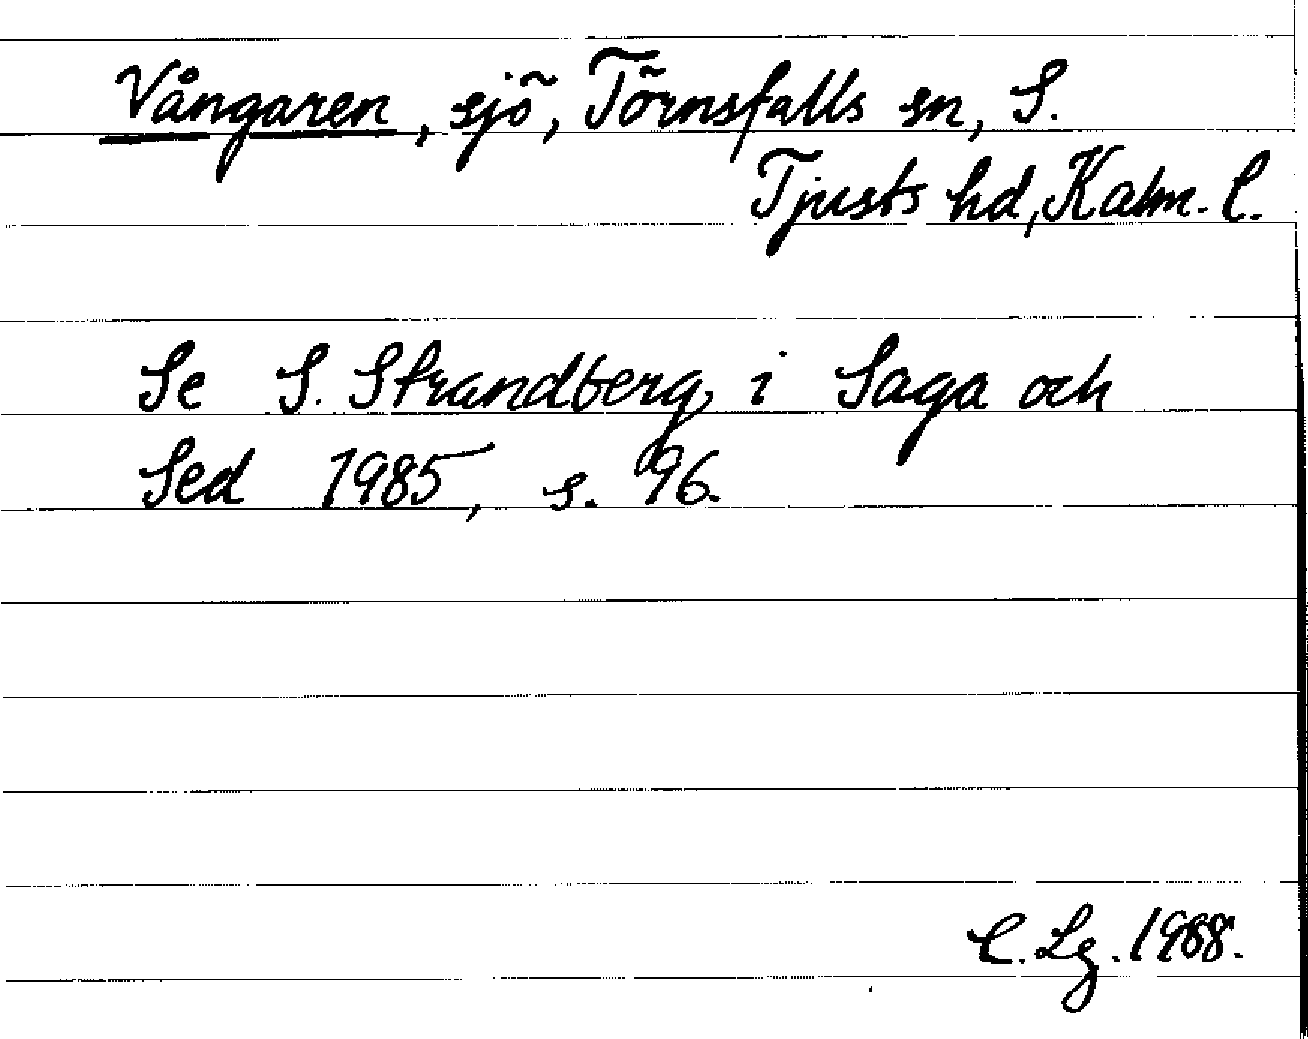 Vångaren, sjö, Törnsfalls sn, S.
Tjusts hd, Kalm. l.
Se S. Strandberg i Saga och
Sed 1985, s. 96.
C. Lg. 1988.